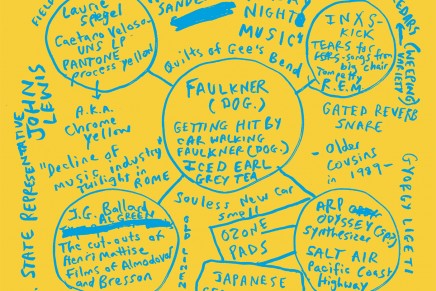 FIELD
Laurie
Spiegel
Caetano Veloso-
UNS LP
PANTONE
Process yellow
SANDE
NIGHT
MUSIC
Quilts of Gee's Bend
INXS-
KICK
TEARS for
FERS-songs from
big chair
Tom petty
R.E.M.
CEDARS
(WEEPING)
VARIETY
A.K.A.
Chrome
yellow
FAULKNER
(DOG.)
GETTING HIT BY
CAR WALKING
FAULKNER (DOG.)
ICED EARL
GREY TEA
GATED REVERB
SNARE
- Older
Cousins
in
1989-
STATE REPRESENTATIVE
JOHN
LEWIS
"Decline of
music industry
Twilight in
ROME
GYORGY LIGETI
Souless New Car
smell
J.G. Ballard
AL GREEN
The cut-outs of
Henri Mattise
Films of Almodovar
and Bresson
OZONE
PADS
JAPANESE
ARP
ODYSSEY (sp?)
Synthesizer
SALT AIR
Pacific Coast
Highway